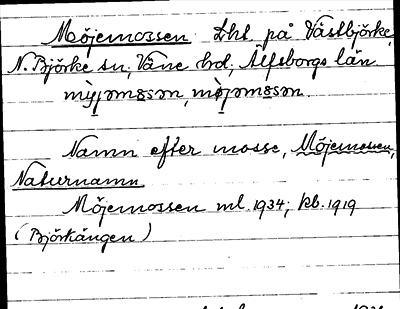 Möjemossen Lht på Västbjörke,
N. Björke sn, Väne hd, Älfsborgs län
Namn efter mosse, Möjemossen,
Naturnamn
Möjemossen ml. 1934; kb. 1919
(Björkängen)